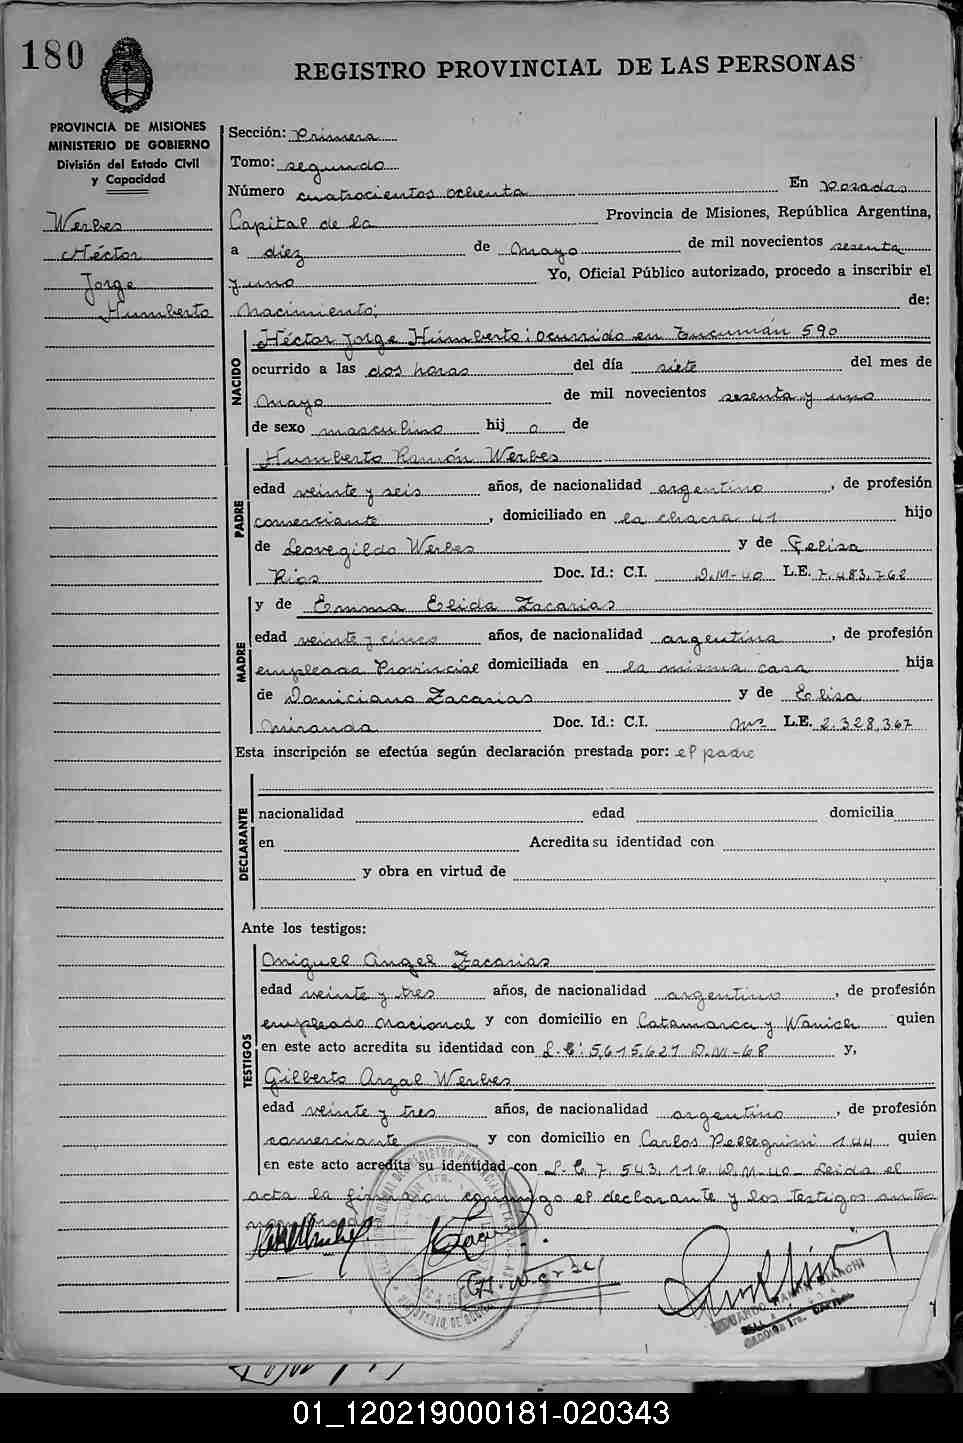 180
REGISTRO PROVINCIAL DE LAS PERSONAS
PROVINCIA DE MISIONES
MINISTERIO DE GOBIERNO
División del Estado Civil
y Capacidad
Werbes
Héctor
Jorge
Humberto
Sección: Primera
Tomo: segundo
Número cuatrocientos ochenta En Posadas
Capital de la Provincia de Misiones, República Argentina,
a diez de Mayo de mil novecientos sesenta
y uno Yo, Oficial Público autorizado, procedo a inscribir el
Nacimiento; de:
NACIDO
Héctor Jorge Humberto; ocurrido en Tucumán 590
ocurrido a las dos horas del día siete del mes de
Mayo de mil novecientos sesenta y uno
de sexo masculino hij o de
PADRE
Humberto Ramón Werbes
edad veinte y seis años, de nacionalidad argentino, de profesión
comerciante, domiciliado en la chacra 41 hijo
de Leovegildo Werbes y de Felisa
Rios Doc. Id.: C.I. D.M-40 L.E. 7.483.762
MADRE
y de Emma Elida Zacarias
edad veinte y cinco años, de nacionalidad argentina, de profesión
empleada Provincial domiciliada en la misma casa hija
de Domiciano Zacarias y de Elisa
Miranda Doc. Id.: C.I. Nº L.E. 2.328.367
Esta inscripción se efectúa según declaración prestada por: el padre
DECLARANTE
nacionalidad edad domicilia
en Acredita su identidad con
y obra en virtud de
Ante los testigos:
TESTIGOS
Miguel Angel Zacarias
edad veinte y tres años, de nacionalidad argentino, de profesión
empleado Nacional y con domicilio en Catamarca y Wanich quien
en este acto acredita su identidad con L.E. 5.615.621 D.M-68 y,
Gilberto Arzal Werbes
edad veinte y tres años, de nacionalidad argentino, de profesión
comerciante y con domicilio en Carlos Pellegrini 144 quien
en este acto acredita su identidad con L.E 7.543.116 D.M-40- Leida el
acta la firmaron conmigo el declarante y los testigos antes
G. A. Werbe
EDUARDO RAMON BIANCHI
01_120219000181-020343